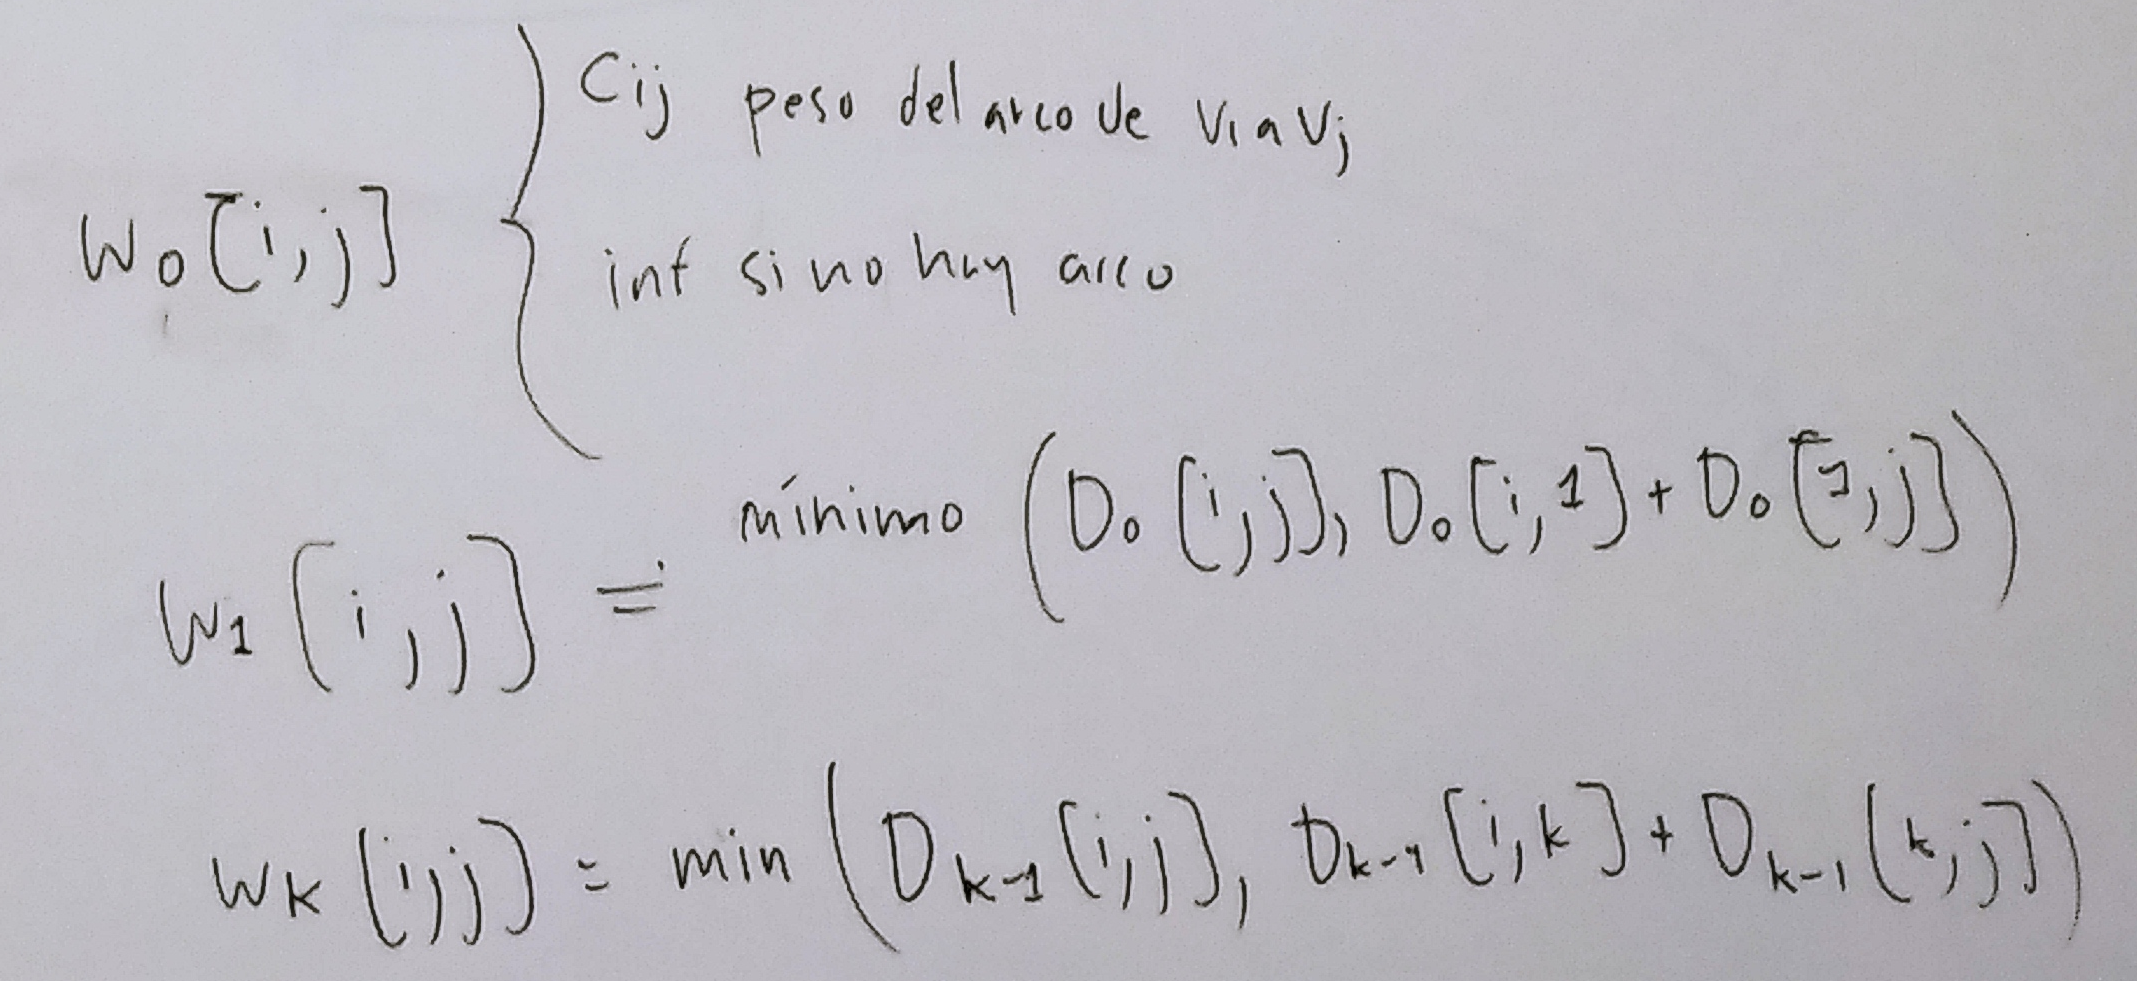 Cij peso del arco de Vi a Vj
W0[i,j] {
inf si no hay arco
mínimo (D0[i,j], D0[i,1] + D0[1,j])
W1[i,j] =
WK[i,j] = min (Dk-1[i,j], Dk-1[i,k] + Dk-1[k,j])